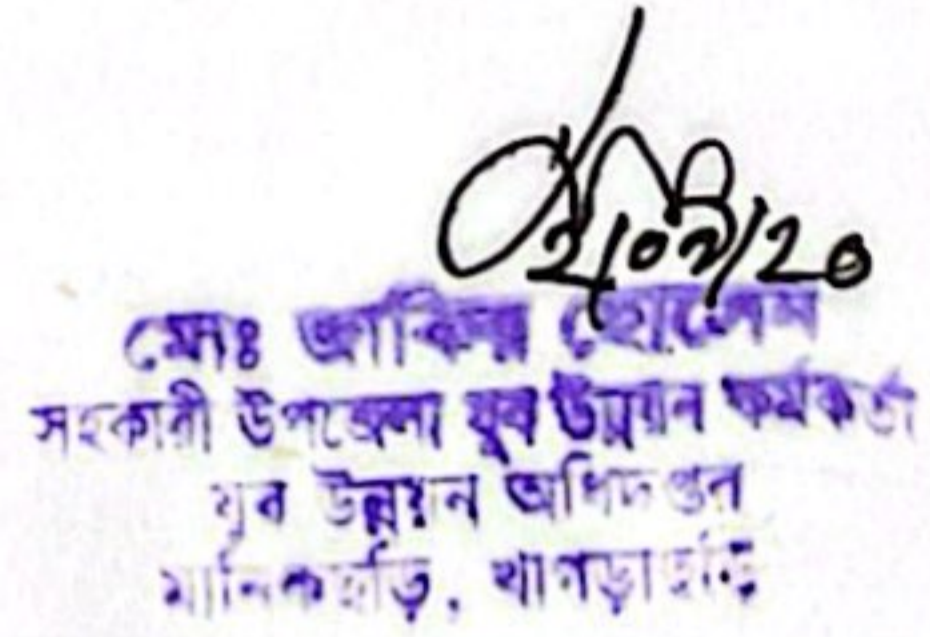 ২/০৯/২০
মোঃ জাকির হোসেন
সহকারী উপজেলা যুব উন্নয়ন কর্মকর্তা
যুব উন্নয়ন অধিদপ্তর
মানিকছড়ি, খাগড়াছড়ি